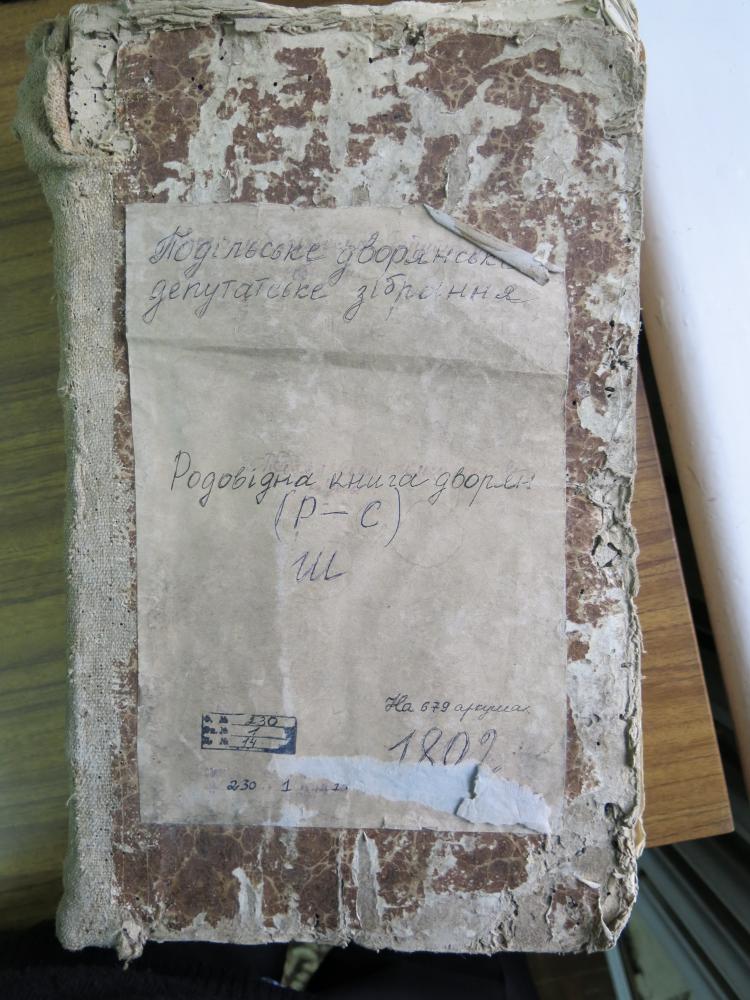 Подільське дворянське
депутатське зібрання
Родовідна книга дворян
(Р – С)
Ш
На 679 аркушах
1802
Ф. № 230
Оп. № 1
№ 14
230 1